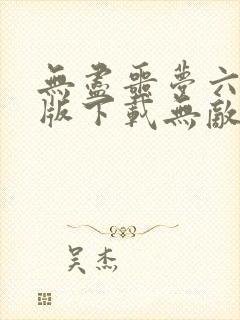 無盡噩夢六
版下載無敵
吴杰